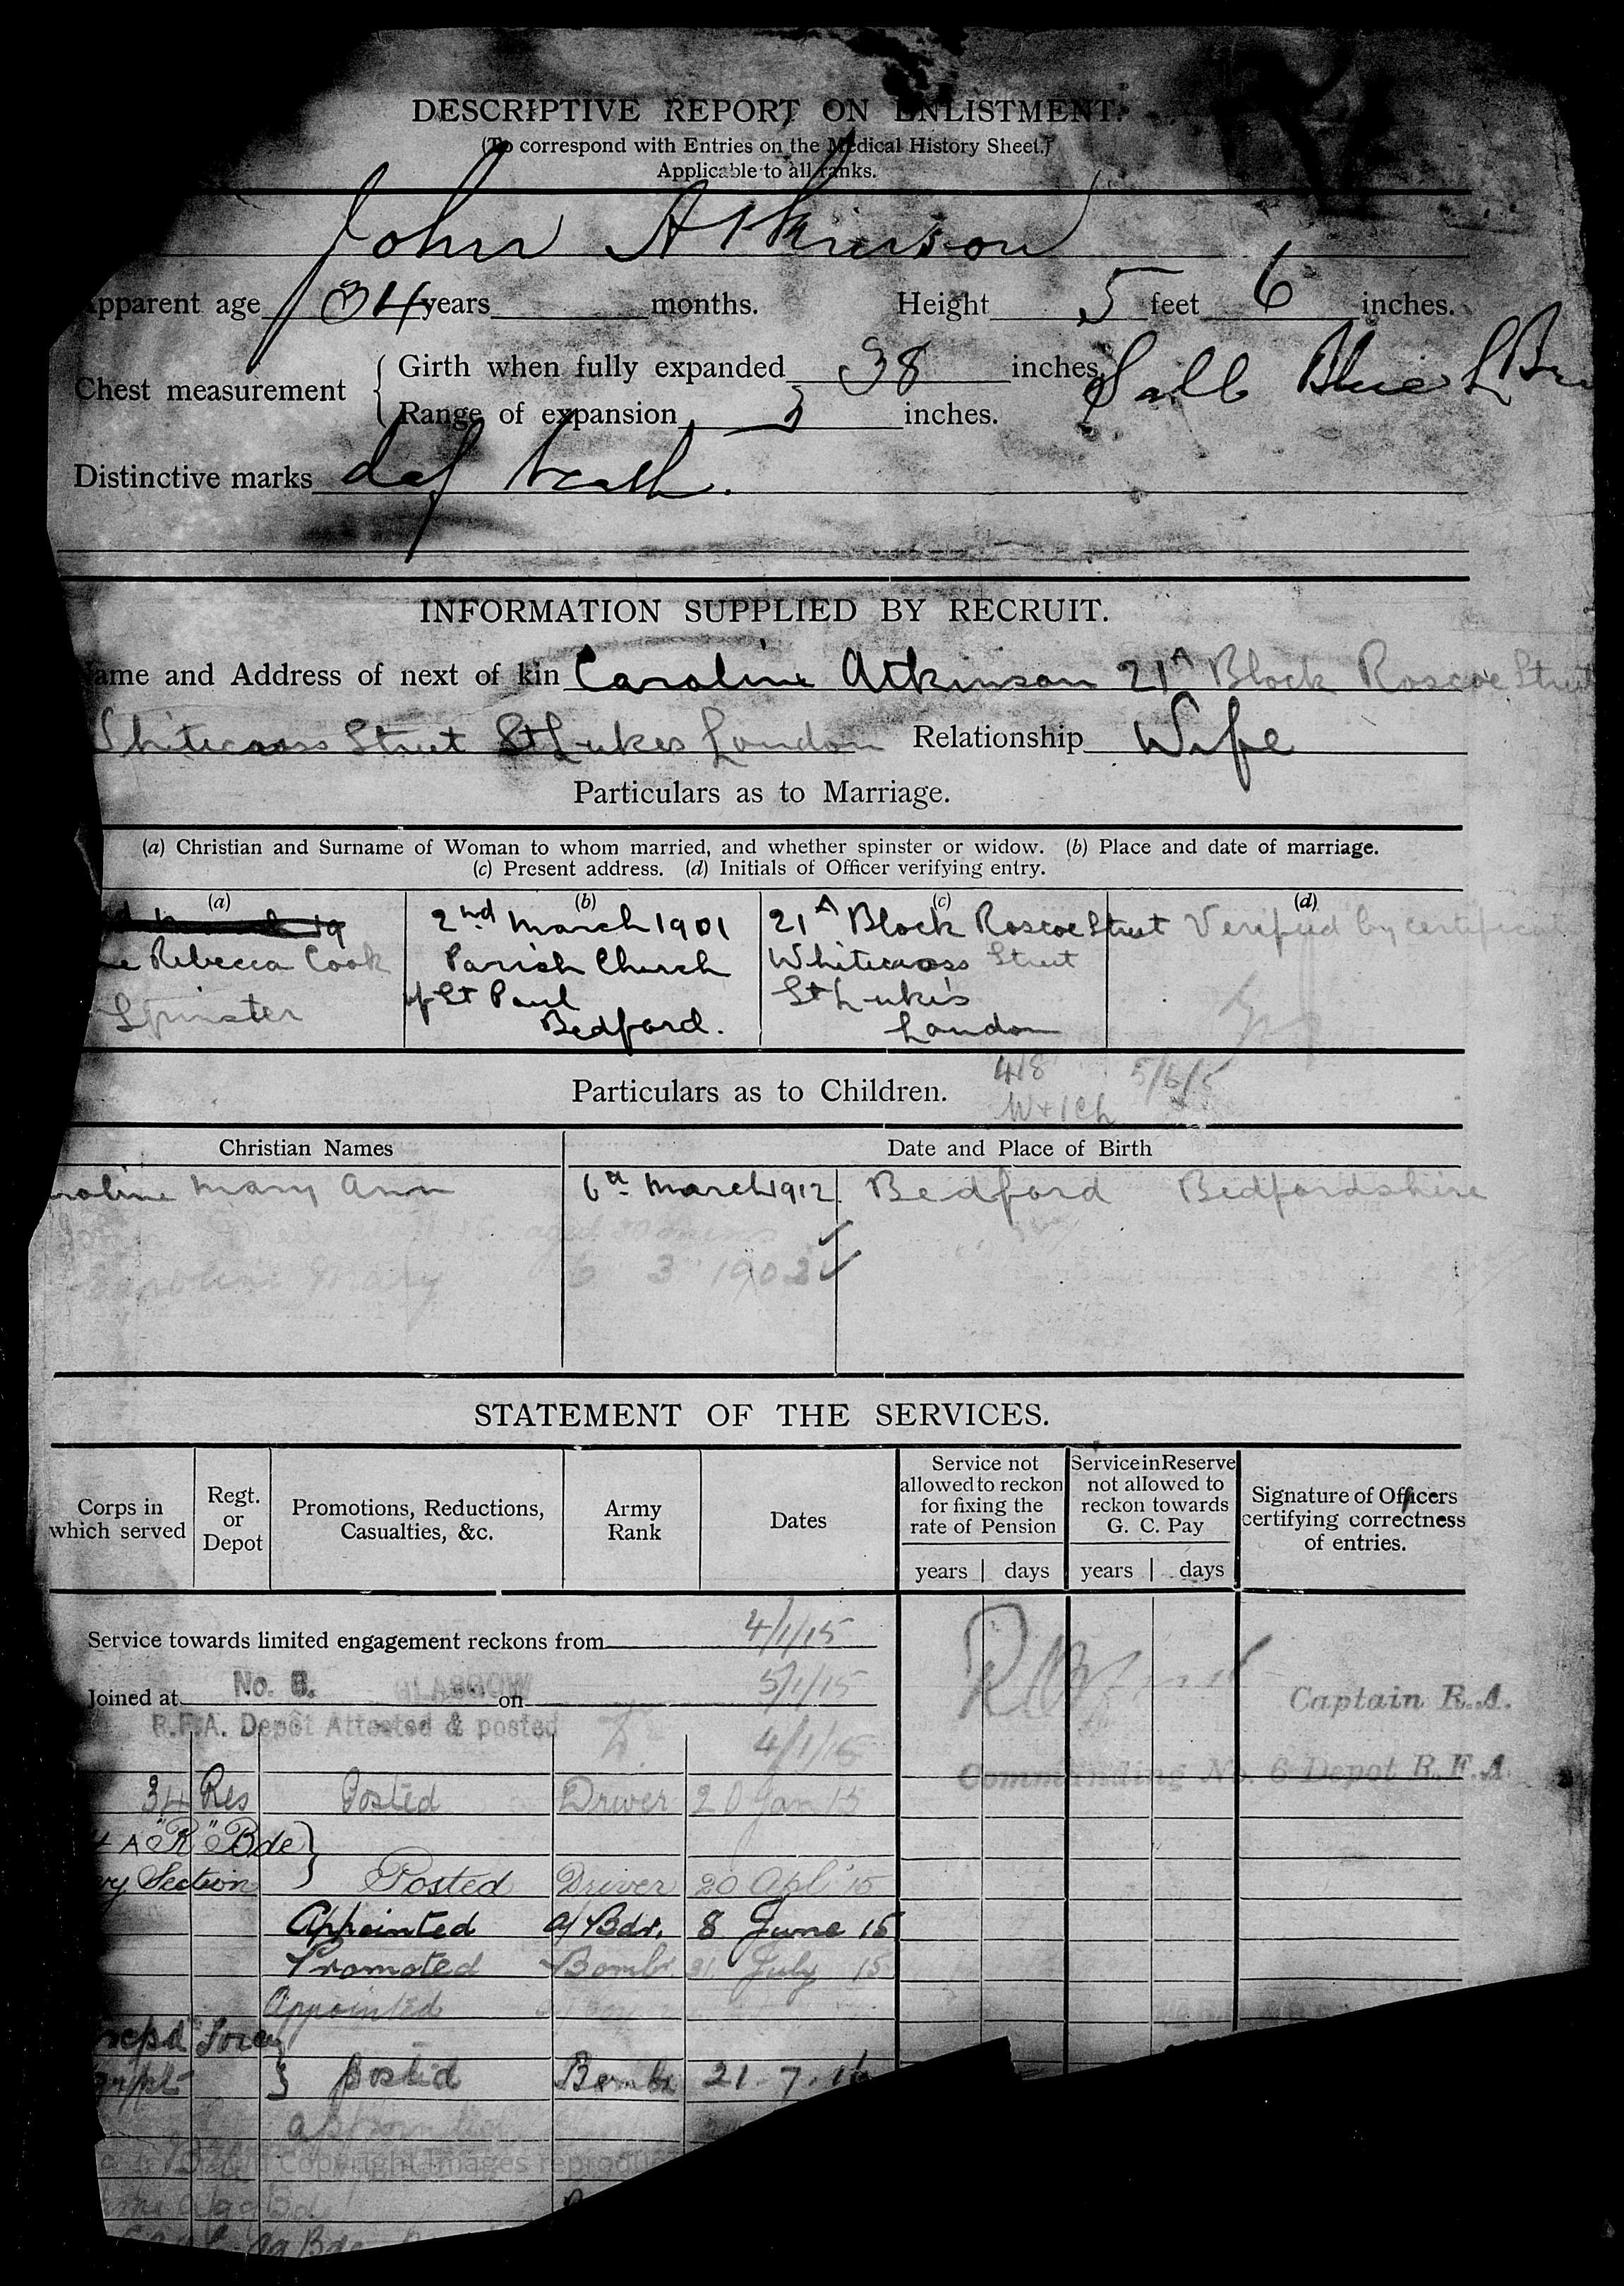 DESCRIPTIVE REPORT ON ENLISTMENT.
(To correspond with Entries on the Medical History Sheet.)
Applicable to all ranks.
John Atkinson
Apparent age 34 years months. Height 5 feet 6 inches.
Chest measurement { Girth when fully expanded 38 inches.
Range of expansion 3 inches.
Sall Blue L Br
Distinctive marks def teeth.
INFORMATION SUPPLIED BY RECRUIT.
ame and Address of next of kin Caroline Atkinson 21A Block Roscoe Street
Whitecross Street St Lukes London Relationship Wife
Particulars as to Marriage.
(a) Christian and Surname of Woman to whom married, and whether spinster or widow. (b) Place and date of marriage.
(c) Present address. (d) Initials of Officer verifying entry.
(a) (b) (c) (d)
19 2nd March 1901 21A Block Roscoe Street Verified by certificate
ne Rebecca Cook Parish Church Whitecross Street
Spinster of St Paul St Luke's
Bedford. London
418 5/6/5
Particulars as to Children. W+1Ch
Christian Names Date and Place of Birth
roline Mary Ann 6th March 1912 Bedford Bedfordshire
aged
Caroline Mary 6 3 1903
STATEMENT OF THE SERVICES.
Corps in which served Regt. or Depot Promotions, Reductions, Casualties, &c. Army Rank Dates Service not allowed to reckon for fixing the rate of Pension Service in Reserve not allowed to reckon towards G. C. Pay Signature of Officers certifying correctness of entries.
years days years days
Service towards limited engagement reckons from 4/1/15
Joined at No. 6. GLASGOW on 5/1/15 Captain R.A.
R.F.A. Depôt Attested & posted 4/1/15
Commanding No. 6 Depot R.F.A.
34 Res Posted Driver 20 Jan 15
4 A "R" Bde }
Section Posted Driver 20 Apl 15
Appointed a/Bdr. 8 June 15
Promoted Bombr 21 July 15
Appointed
posted Bombr 21.7.16
Copyright Images reproduc
Bde
Bde